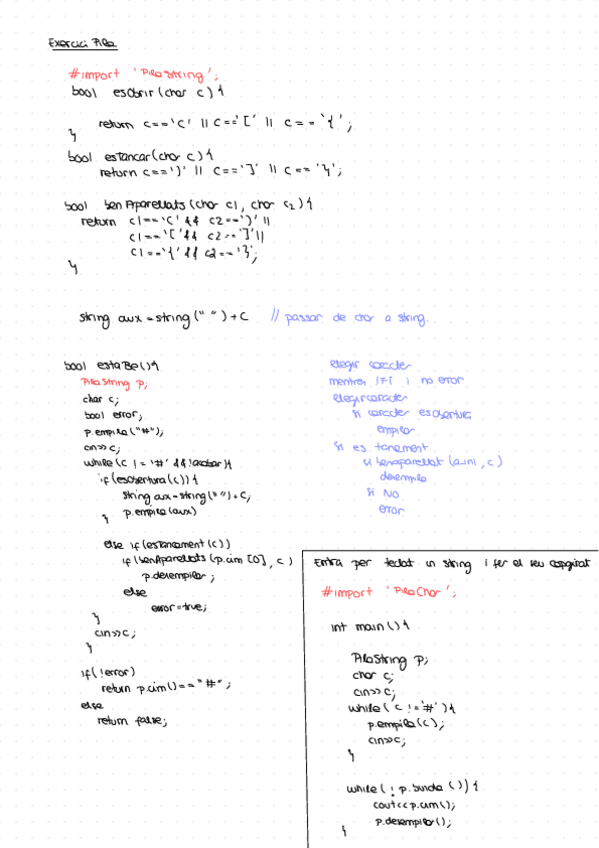 Exercici Pila
#import 'PilaString';
bool esObrir(char c){
return c=='(' || c=='[' || c=='{';
}
bool estancar(char c){
return c==')' || c==']' || c=='}';
bool benAparellats(char c1, char c2){
return c1=='(' && c2==')' ||
c1=='[' && c2==']' ||
c1=='{' && c2=='}';
}
string aux=string("")+c // passar de char a string.
bool estaBe(){
PilaString p;
char c;
bool error;
p.empila("#");
cin>>c;
while(c!='#' && !acabar){
if(esobertura(c)){
string aux=string("")+c;
p.empila(aux)
}
else if(estancament(c))
if(benAparellats(p.cim[0], c)
p.desempilar;
else
error=true;
}
cin>>c;
}
if(!error)
return p.cim()=="#";
else
return false;
llegir caracter
mentre !Fi i no error
llegir caracter
si caracter es obertura
empilar
si es tancament
si benaparellat(a.ini, c)
desempila
si NO
error
Entra per teclat un string i fer el seu capgirat
#import 'PilaChar';
int main(){
PilaString p;
char c;
cin>>c;
while('c!='#'){
p.empila(c);
cin>>c;
}
while(!p.buida()){
cout<<p.cim();
p.desempila();
}